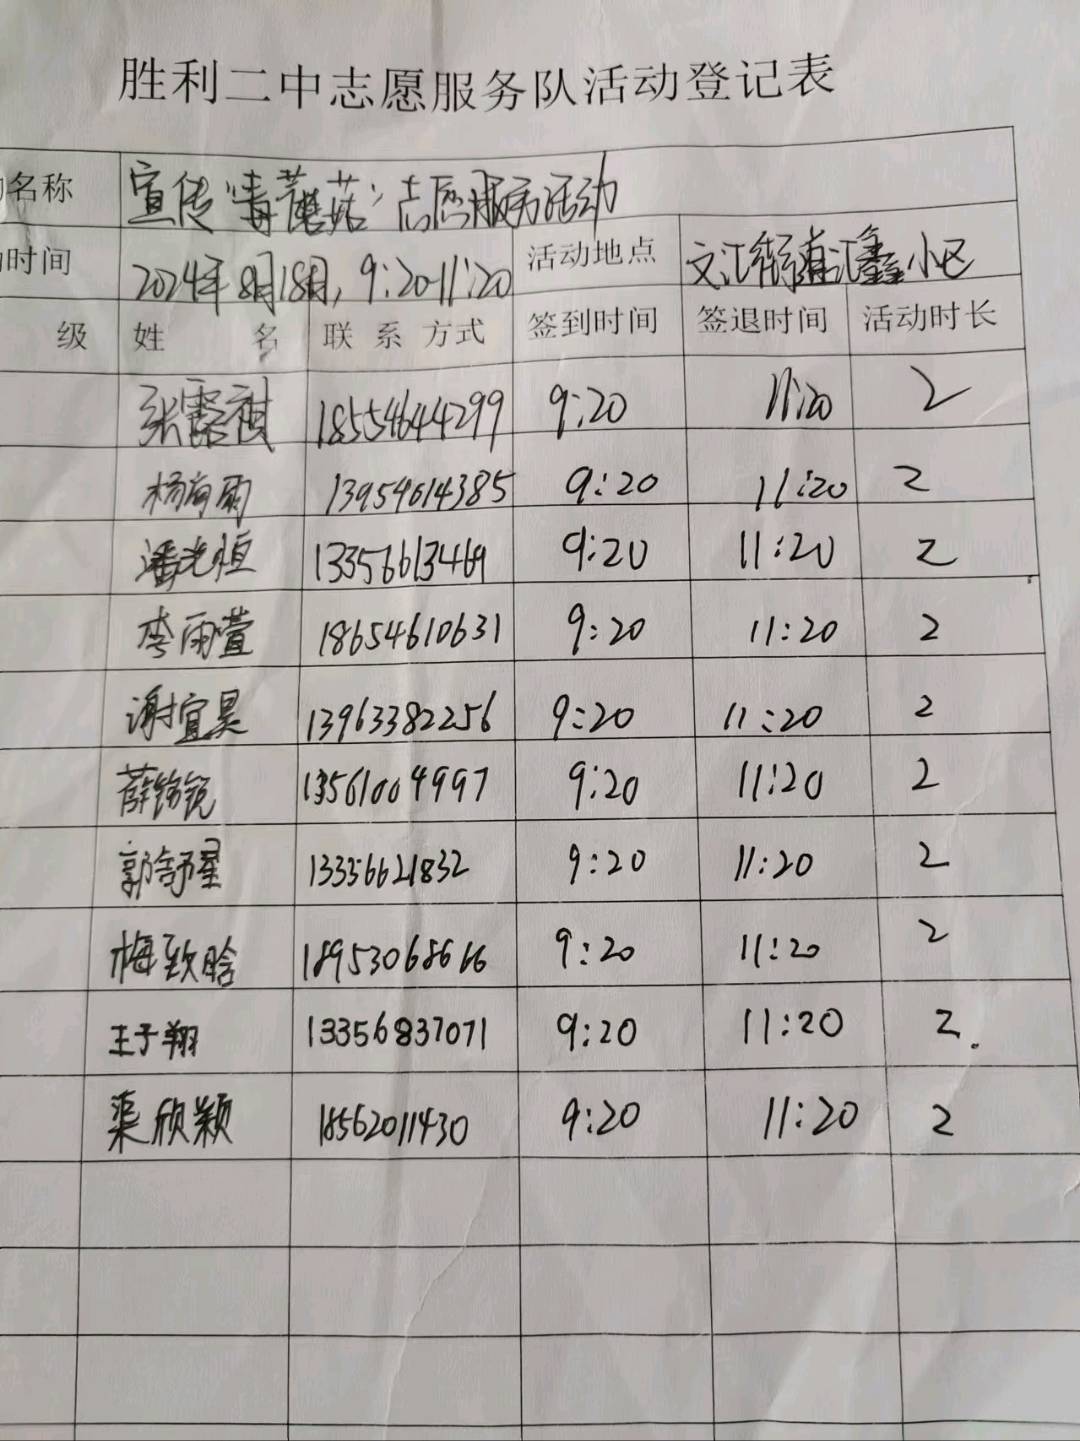 胜利二中志愿服务队活动登记表
名称 宣传“毒蘑菇”志愿服务活动
时间 2024年8月18日，9:20-11:20 活动地点 文汇街道浦汇鑫小区
级 姓 名 联 系 方式 签到时间 签退时间 活动时长
张露祺 18554644299 9:20 11:20 2
杨 雨 13954614385 9:20 11:20 2
潘光恒 13356613469 9:20 11:20 2
李雨萱 18654610631 9:20 11:20 2
谢宜昊 13963382256 9:20 11:20 2
薛 锐 13561004997 9:20 11:20 2
郭舒星 13356621832 9:20 11:20 2
梅致晗 18953068666 9:20 11:20 2
王子翔 13356837071 9:20 11:20 2.
渠欣颖 18562011430 9:20 11:20 2